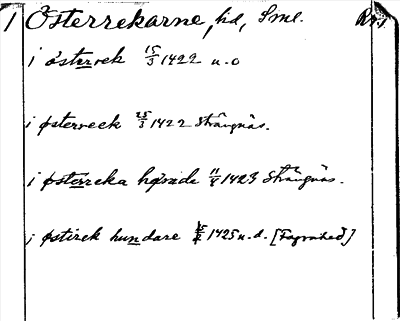 1 Österrekarne, hd, Sml. Rs.
i österrek 15/3 1422 u.o
i østerreek 25/3 1422 Strängnäs.
i østerreka hærade 11/8 1423 Strängnäs.
i østirek hundare 1425 u.d. [Fogvited]